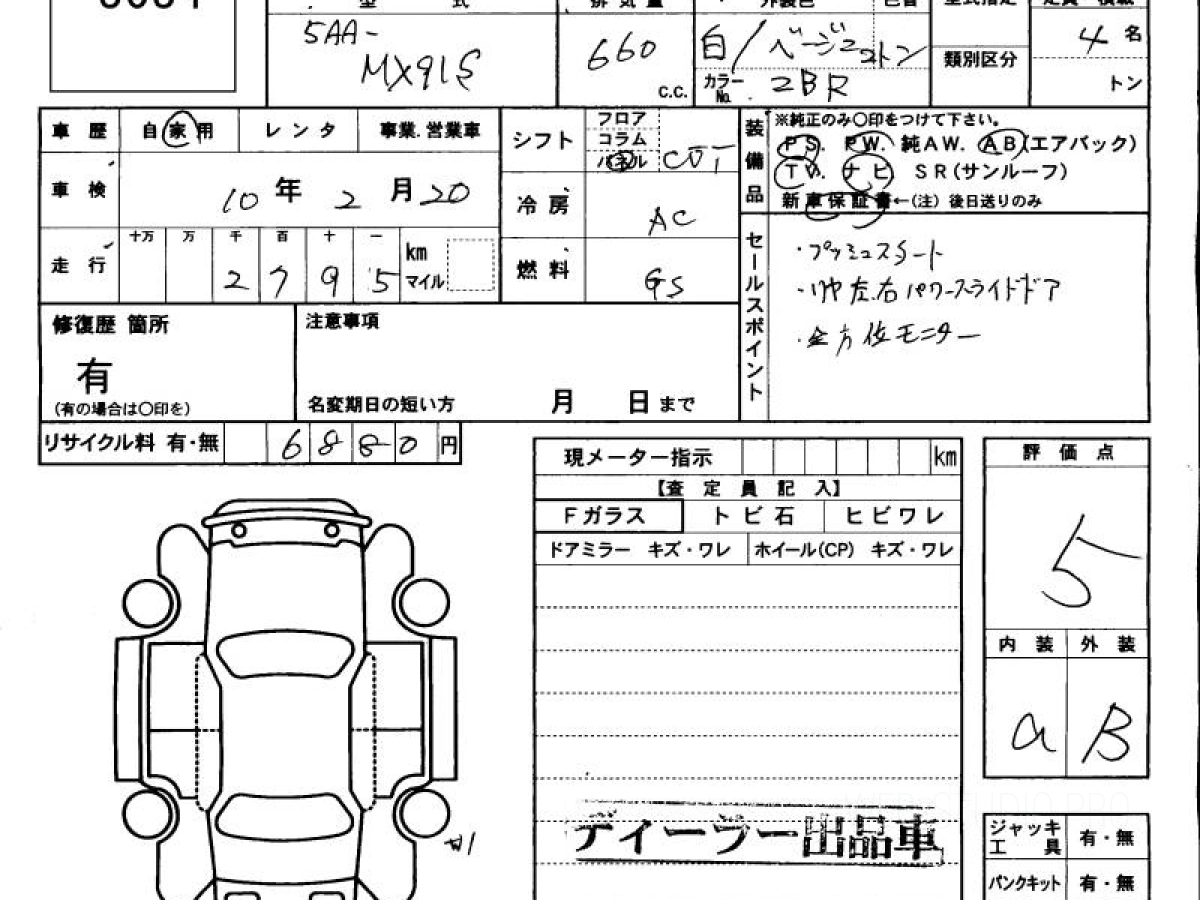 型 式
排気量
外装色
5AA-
MX91S
660
c.c.
白/ベージュ2トン
カラーNo. 2BR
類別区分
4名
トン
車歴 自家用 レンタ 事業.営業車
車検 10年 2月20
走行 十万 万 千 百 十 一
2795
km
マイル
シフト フロア
コラム
パネル CVT
冷房 AC
燃料 GS
装備品
※純正のみ〇印をつけて下さい。
PS. PW. 純AW. AB(エアバック)
TV. ナビ SR(サンルーフ)
新車保証書←(注)後日送りのみ
セールスポイント
・プッシュスタート
・リヤ左右パワースライドドア
・全方位モニター
修復歴 箇所
有
(有の場合は〇印を)
注意事項
名変期日の短い方 月 日まで
リサイクル料 有・無 6880円
現メーター指示 km
【査定員記入】
Fガラス トビ石 ヒビワレ
ドアミラー キズ・ワレ ホイール(CP) キズ・ワレ
評価点
5
内装 外装
a B
ディーラー出品車
ジャッキ
工具 有・無
パンクキット 有・無